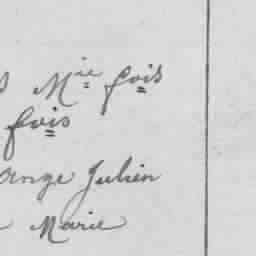 Mie fois
fois
ange Julien
Marie